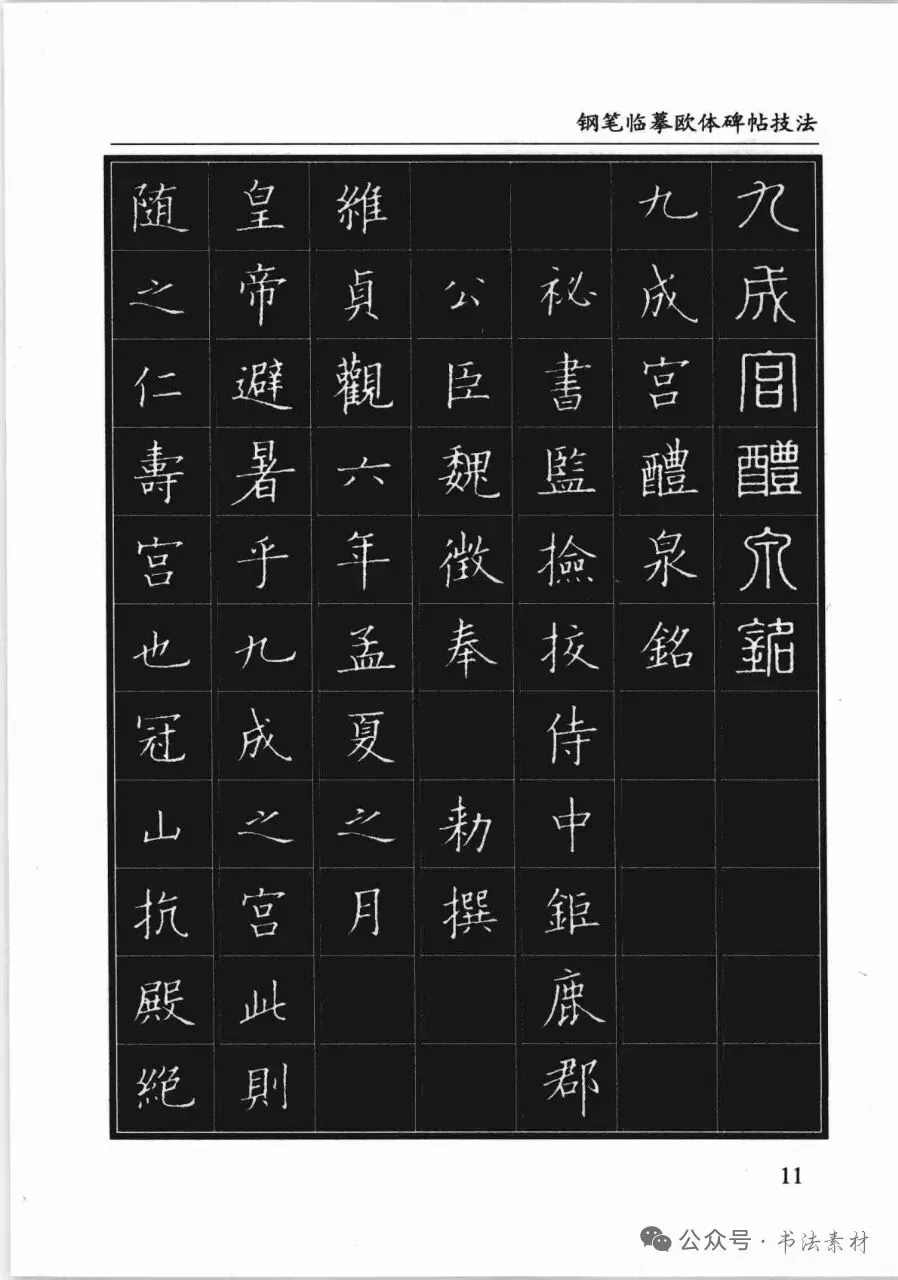 钢笔临摹欧体碑帖技法
九成宫醴泉銘
九成宫醴泉銘
祕書監撿挍侍中鉅鹿郡
公臣魏徵奉 勑撰
維貞觀六年孟夏之月
皇帝避暑乎九成之宫此則
随之仁壽宫也冠山抗殿絕
11
公众号·书法素材